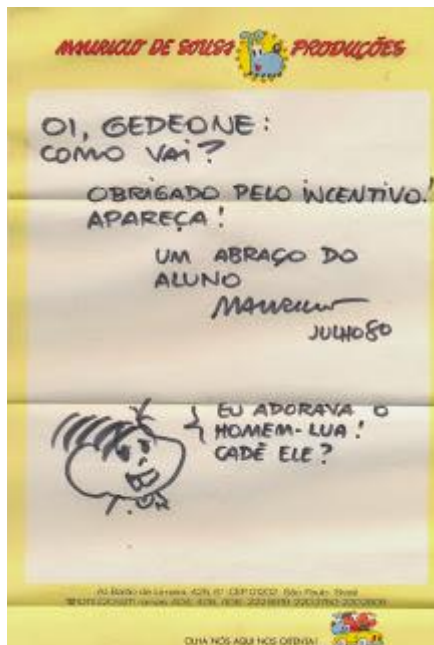 MAURICIO DE SOUSA PRODUÇÕES
OI, GEDEONE:
COMO VAI?
OBRIGADO PELO INCENTIVO!
APAREÇA!
UM ABRAÇO DO
ALUNO
MAURICIO
JULHO 80
EU ADORAVA O
HOMEM-LUA!
CADÊ ELE?
São Paulo Brasil
OLHA NÓS AQUI NOS OITENTA!